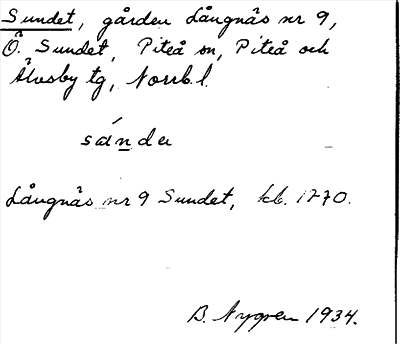 Sundet, gården Långnäs nr 9,
Ö. Sundet, Piteå sn, Piteå och
Älvsby tg, Norrb. l.
sánde
Långnäs nr 9 Sundet, kb. 1770.
B. Nygren 1934.